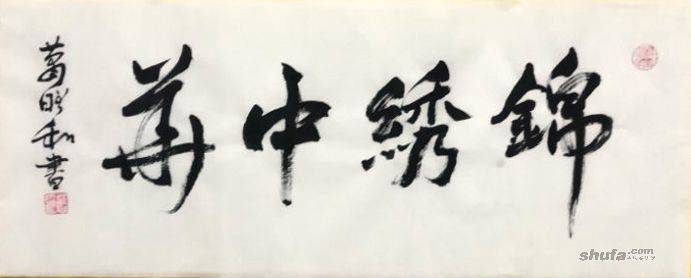 錦綉中華
葛晧和書
shufa.com